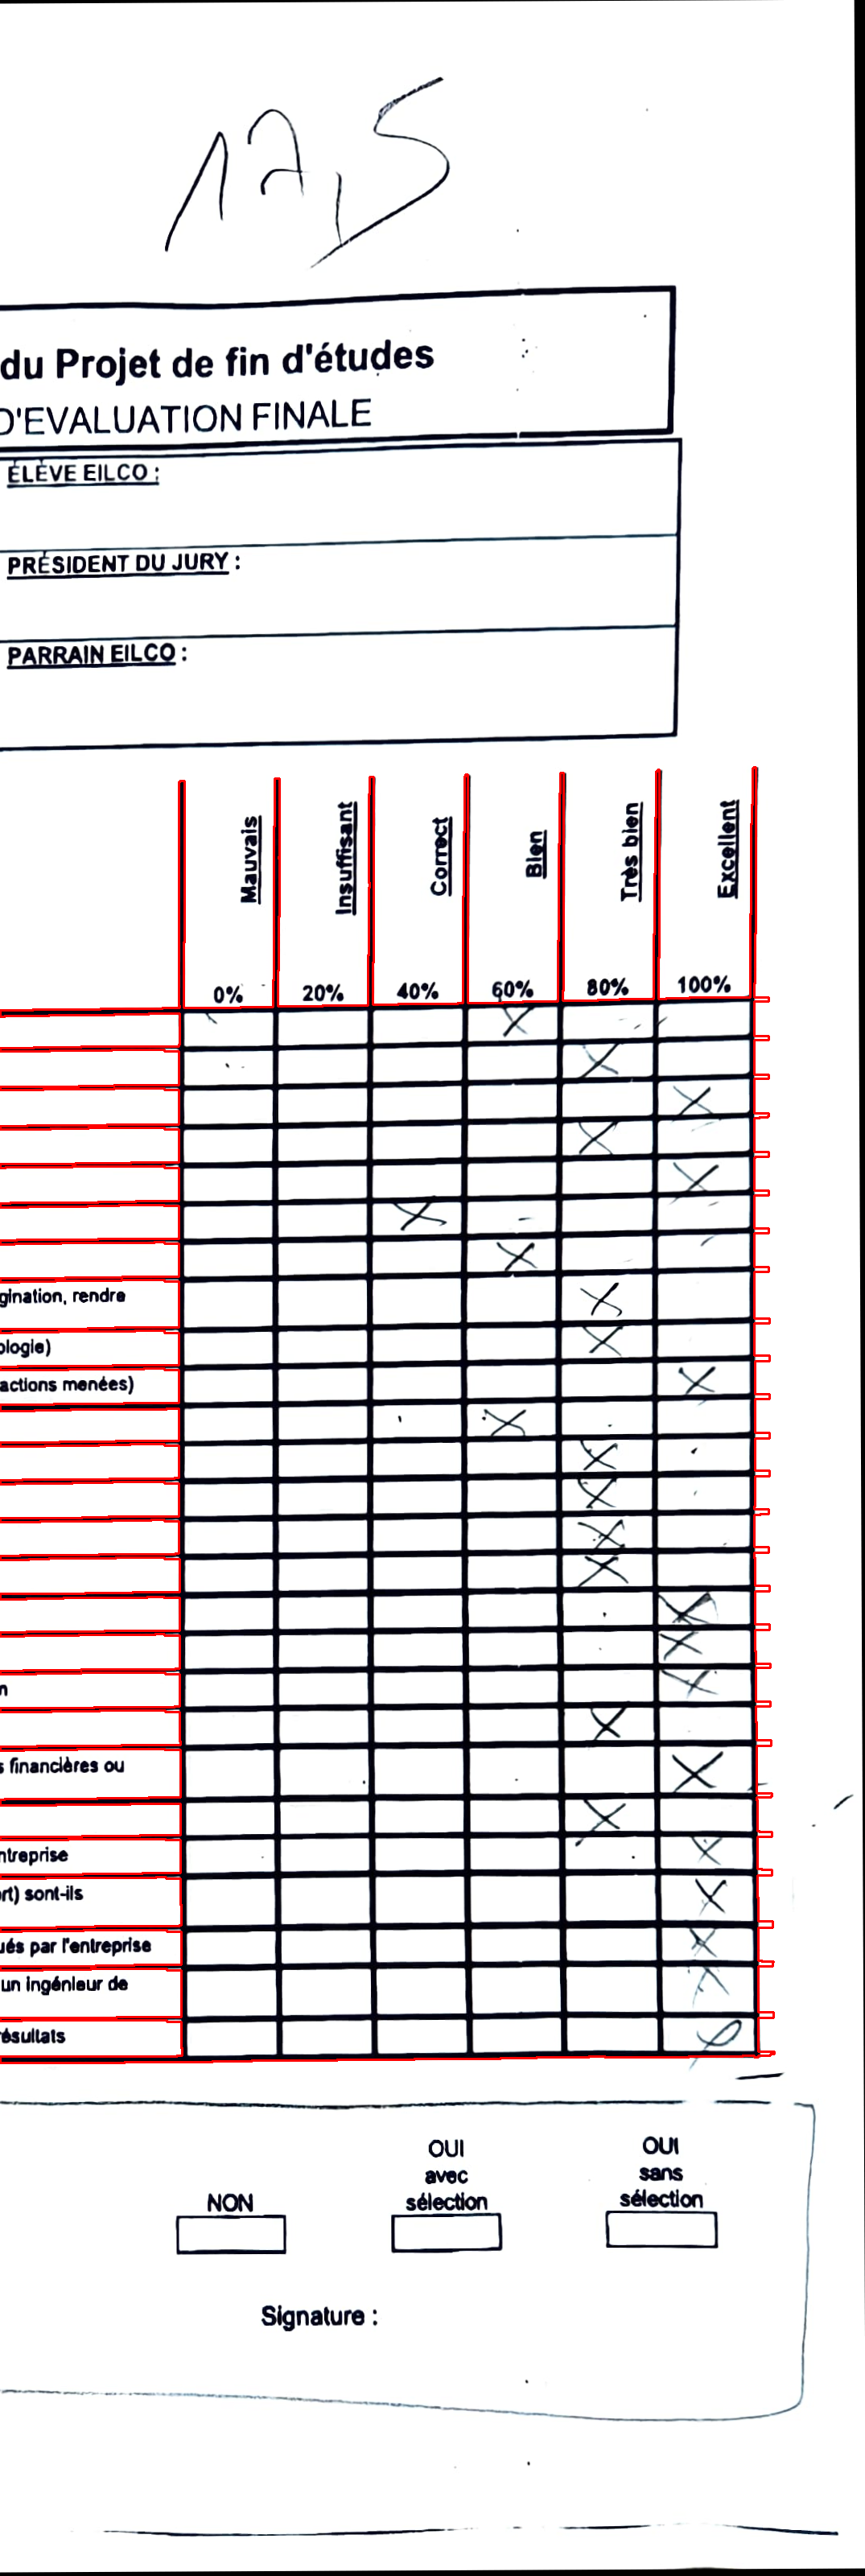 17,5
du Projet de fin d'études
D'EVALUATION FINALE
ÉLÈVE EILCO :
PRÉSIDENT DU JURY :
PARRAIN EILCO :
Mauvais
Insuffisant
Correct
Bien
Très bien
Excellent
0% 20% 40% 60% 80% 100%
gination, rendre
ologie)
actions menées)
n
s financières ou
ntreprise
rt) sont-ils
ués par l'entreprise
un ingénieur de
résultats
NON
OUI
avec
sélection
OUI
sans
sélection
Signature :